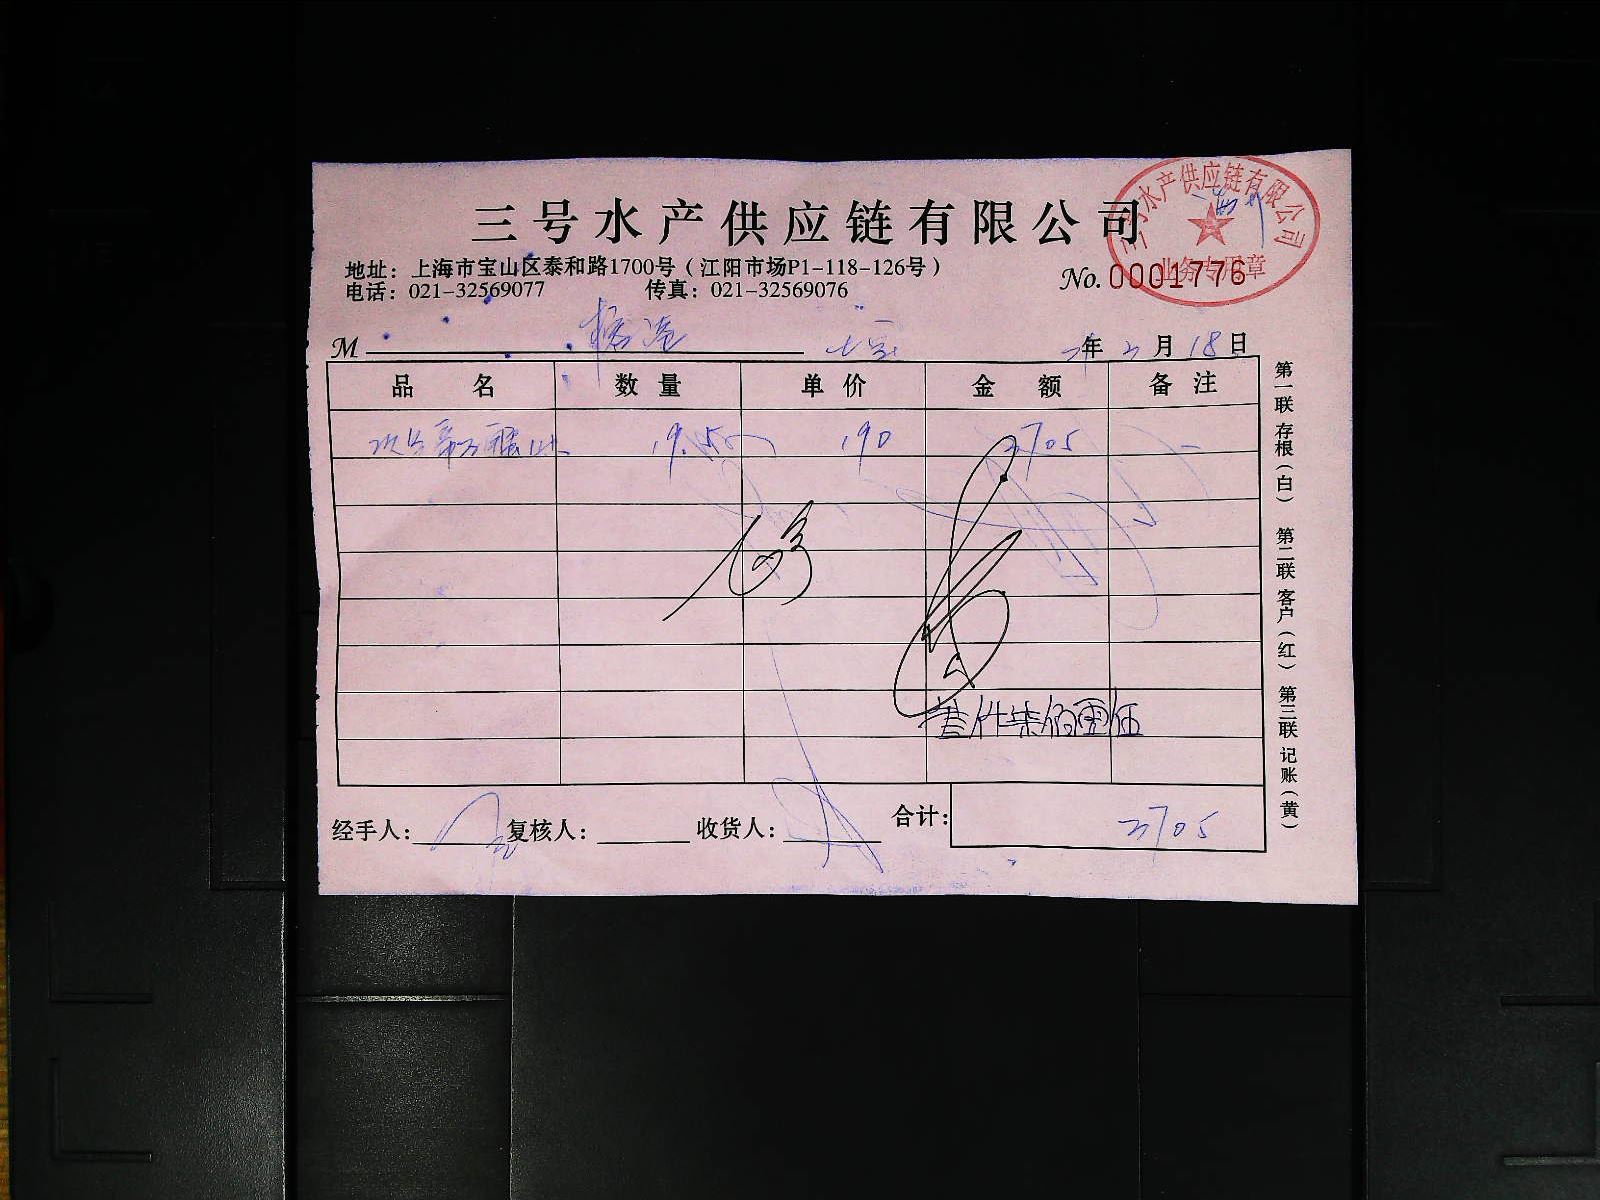 三号水产供应链有限公司
三号水产供应链有限公司
业务专用章
地址：上海市宝山区泰和路1700号（江阳市场P1-118-126号）
电话：021-32569077 传真：021-32569076
No.0001776
M 榕港 七宝 年 3月18日
品名 数量 单价 金额 备注
19.5 190 3705
叁仟柒佰零伍
经手人： 复核人： 收货人： 合计： 3705
第一联 存根（白） 第二联 客户（红） 第三联 记账（黄）